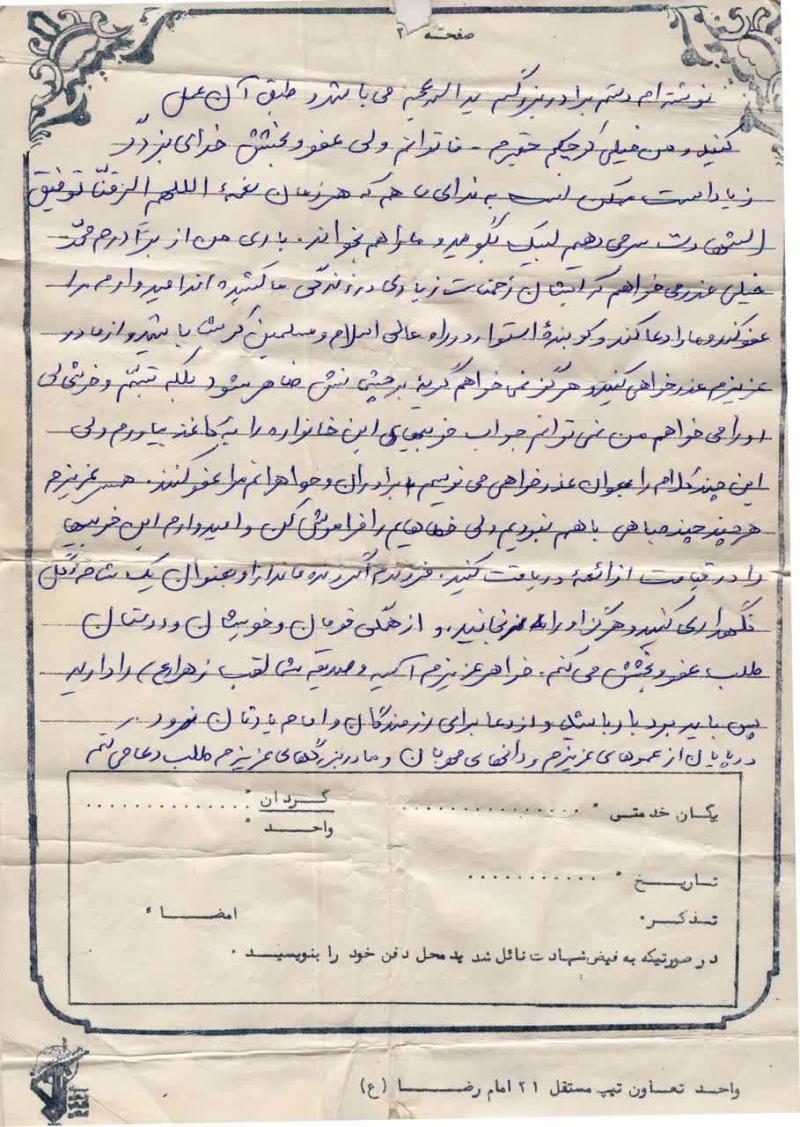 صفحه ۲
نوشته ام دستم برادر بزرگم ید اله می باشد و طبق آن عمل
کنید و من خیلی کوچکم حقیرم - ناتوانم ولی عفو و بخشش خدای بزرگ
زیاد است ممکن است به ندای ما هم که هر زمان نغمهٔ اللهم الرزقنا توفیق
الشهادت سر می دهیم لبیک بگوید و ما را هم بخواند. باری من از برادرم
خیلی عذر می خواهم که ایشان زحمات زیادی در زندگی ما کشیده اند امیدوارم مرا
عفو کند و ما را دعا کند و کوبندهٔ استوار در راه عالی اسلام و مسلمین کوشا باشید و از مادر
عزیزم عذر خواهی کنید و هرگز نمی خواهم گریهٔ بر چشمانش ظاهر شود بلکه تبسّم و خوشحالی
او را می خواهم من نمی توانم جواب خوبیهای این خانواده را به کاغذ بیاورم ولی
این چند کلام را بعنوان عذر خواهی می نویسم برادران و خواهرانم مرا عفو کنند. همسر عزیزم
هر چند چند صباحی با هم نبودیم ولی خطاهایم را فراموش کن و امیدوارم این خوبیها
را در قیامت از ائمهٔ دریافت کنید. فرزندم اگر زنده ماند او را بعنوان یک شاخه گل
نگهداری کنید و هرگز او را نرنجانید. و از همگی قومان و خویشان و دوستان
طلب عفو و بخشش می کنم. خواهر عزیزم آسیه و صدیقه شما لقب زهرا (ع) را دارید
پس باید بردبار باشید و از دعا برای رزمندگان و امام یادتان نرود
در پایان از عموهای عزیزم و دائیهای مهربان و مادربزرگهای عزیزم طلب دعا می کنم
یگان خدمتی : ............... گردان : ...............
واحد :
تاریخ : ............
تذکر: امضاء :
در صورتیکه به فیض شهادت نائل شدید محل دفن خود را بنویسید .
واحد تعاون تیپ مستقل ۲۱ امام رضا (ع)